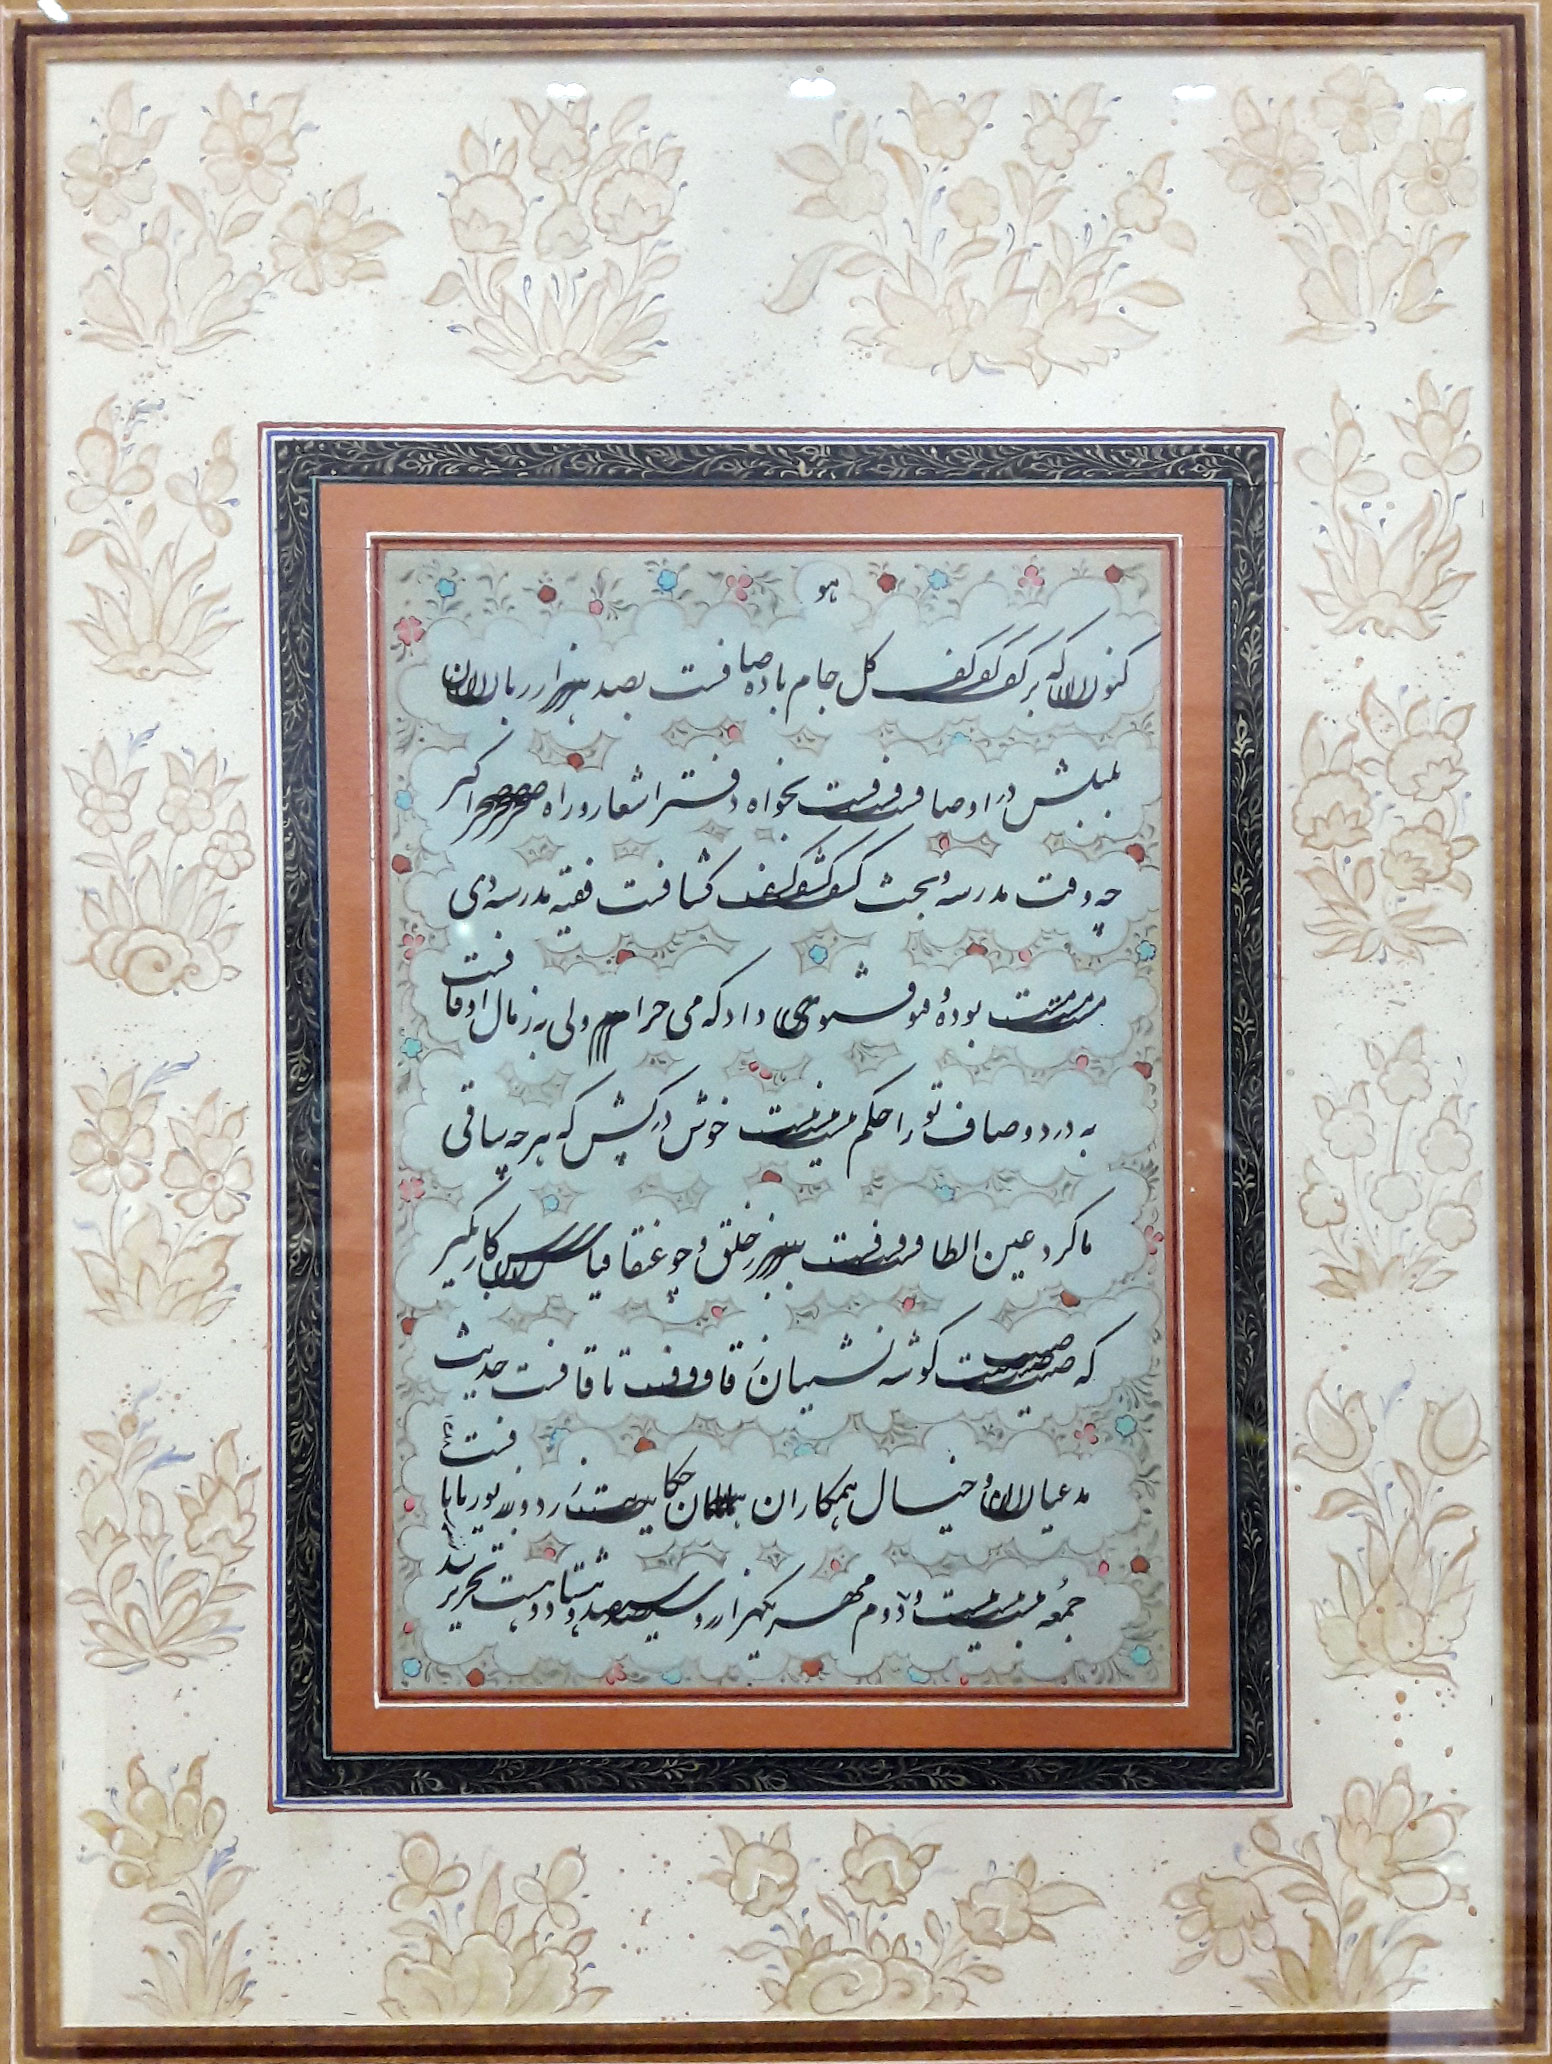 هو
کنون که بر کف گل جام باده صافست بصد هزار زبان
بلبلش در اوصافست بخواه دفتر اشعار و راه صحرا گیر
چه وقت مدرسه و بحث کشف کشافست فقیه مدرسه دی
مست بود و فتوی داد که می حرام ولی به ز مال اوقافست
به درد و صاف تو را حکم نیست خوش درکش که هر چه ساقی
ما کرد عین الطافست ببر ز خلق و چو عنقا قیاس کار بگیر
که صیت گوشه نشینان ز قاف تا قافست حدیث
مدعیان و خیال همکاران همان حکایت زردوز و بوریا بافست
جمعه بیست و دوم مهر یکهزار و سیصد و هشتاد و هشت تحریر شد